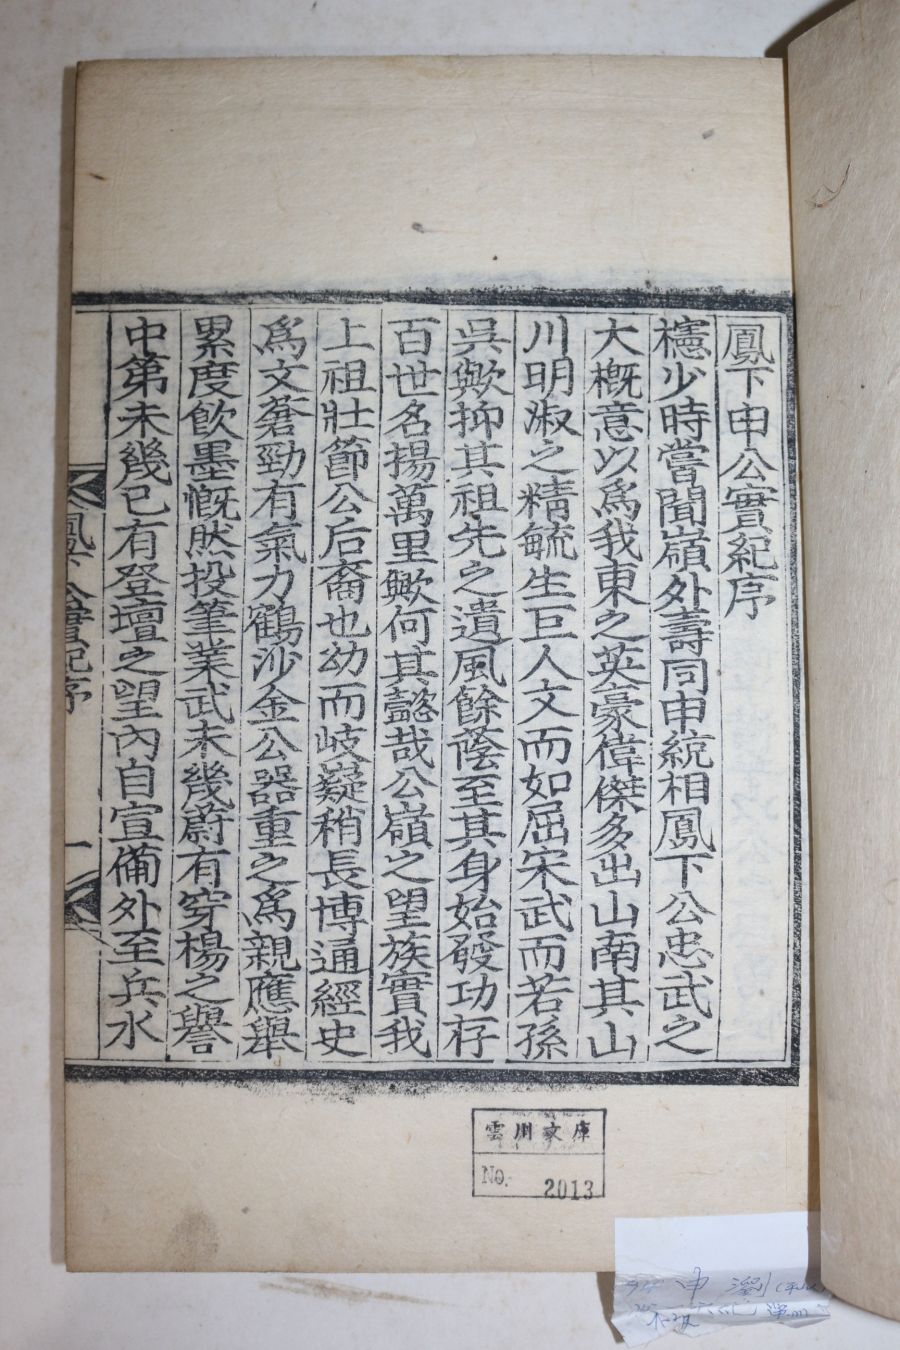 鳳下申公實紀序
櫶少時嘗聞嶺外壽同申統相鳳下公忠武之
大槪意以爲我東之英豪偉傑多出山南其山
川明淑之精毓生巨人文而如屈宋武而若孫
吳歟抑其祖先之遺風餘蔭至其身始發功存
百世名揚萬里歟何其懿哉公嶺之望族實我
上祖壯節公后裔也幼而岐嶷稍長博通經史
爲文蒼勁有氣力鶴沙金公器重之爲親應舉
累度飮墨慨然投筆業武未幾蔚有穿楊之譽
中第未幾已有登壇之望內自宣備外至兵水
鳳下公實紀序
一
雲川文庫
No. 2013
申瀏